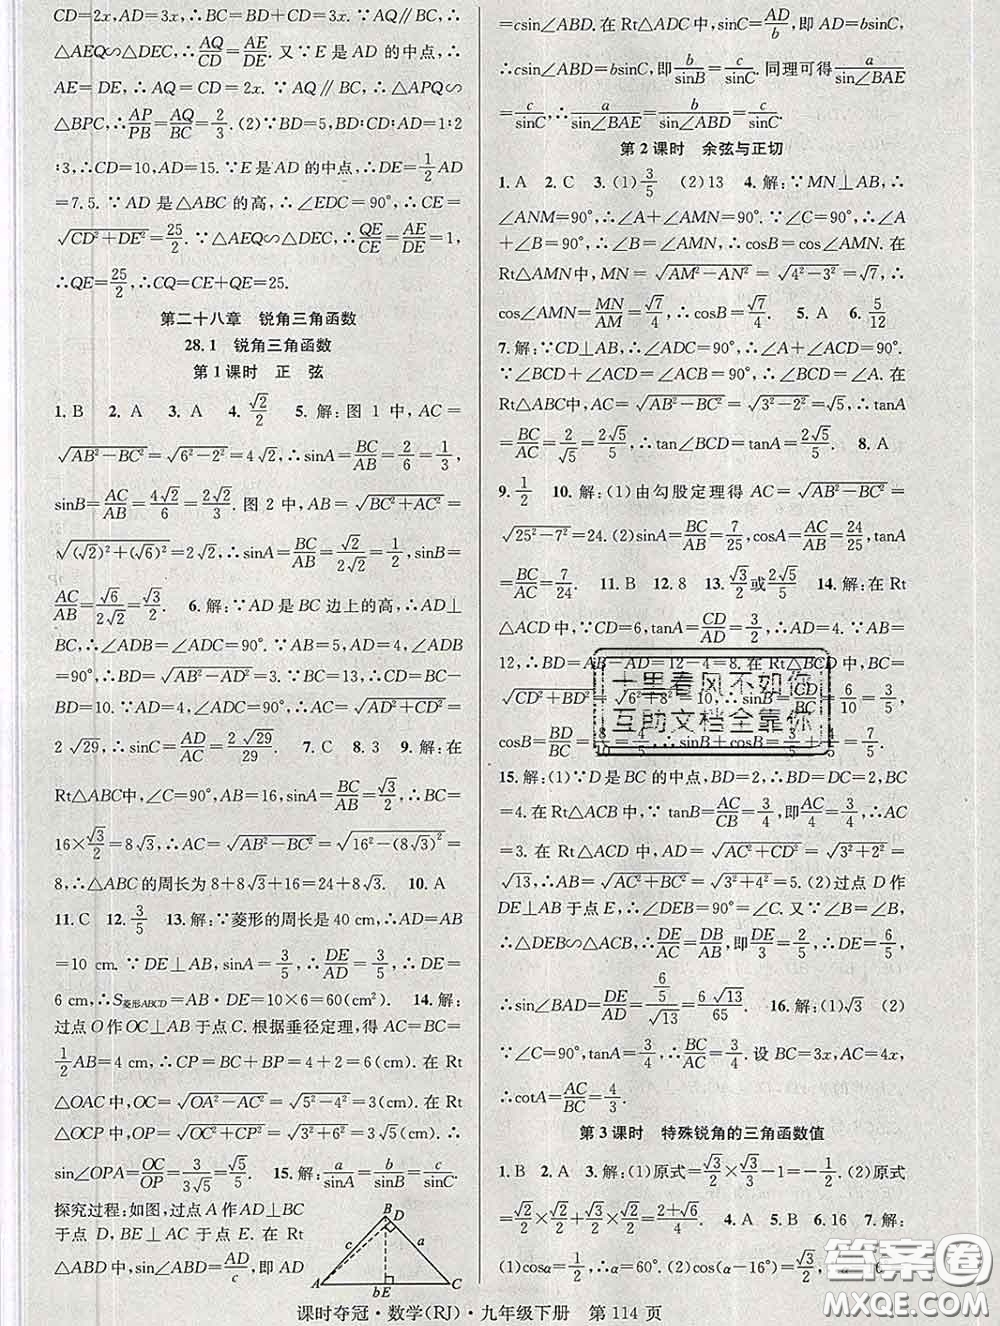 CD=2x,AD=3x.∴BC=BD+CD=3x.∵AQ∥BC,∴
△AEQ∽△DEC,∴AQ/CD=AE/DE.又∵E是AD的中点,∴
AE=DE,∴AQ=CD=2x.∵AQ∥BC,∴△APQ∽
△BPC,∴AP/PB=AQ/BC=2/3.(2)∵BD=5,BD:CD=1:2
:3,∴CD=10,AD=15.∵E是AD的中点,∴DE=1/2AD
=7.5.∵AD是△ABC的高,∴∠EDC=90°,∴CE=
√(CD²+DE²)=25/2.∵△AEQ∽△DEC,∴QE/CE=AE/DE=1,
∴QE=25/2,∴CQ=CE+QE=25.
第二十八章 锐角三角函数
28.1 锐角三角函数
第1课时 正 弦
1.B 2.A 3.A 4.√2/2 5.解:图1中,AC=
√(AB²−BC²)=√(6²−2²)=4√2,∴sinA=BC/AB=2/6=1/3,
sinB=AC/AB=4√2/6=2√2/3.图2中,AB=√(BC²+AC²)=
√((√2)²+(√6)²)=2√2,∴sinA=BC/AB=√2/2√2=1/2,sinB=
AC/AB=√6/2√2=√3/2. 6.解:∵AD是BC边上的高,∴AD⊥
BC,∴∠ADB=∠ADC=90°.∵AB=5,AD=4,∴BD
=√(AB²−AD²)=3.∵BC=13,∴CD=BC−BD=
10.在Rt△ADC中,∴AC=√(AD²+CD²)=√(4²+10²)=
2√29,∴sinC=AD/AC=2√29/29. 7.C 8.3 9.解:在
Rt△ABC中,∠C=90°,AB=16,sinA=√3/2,∴BC=
16×√3/2=8√3,∴AC=√(AB²−BC²)=√(16²−(8√3)²)=
8,∴△ABC的周长为8+8√3+16=24+8√3. 10.A
11.C 12.3/5 13.解:∵菱形的周长是40 cm,∴AD=AB
=10 cm.∵DE⊥AB,sinA=3/5,∴DE/AD=3/5,∴DE=
6 cm,∴S菱形ABCD=AB·DE=10×6=60(cm²). 14.解:
过点O作OC⊥AB于点C.根据垂径定理,得AC=BC=
1/2AB=4 cm,∴CP=BC+BP=4+2=6(cm).在Rt
△OAC中,OC=√(OA²−AC²)=√(5²−4²)=3(cm).在Rt
△OCP中,OP=√(OC²+CP²)=√(3²+6²)=3√5(cm).∴
sin∠OPA=OC/OP=3/3√5=√5/5. 15.解:a/sinA=b/sinB=c/sinC.
探究过程:如图,过点A作AD⊥BC
于点D,BE⊥AC于点E.在Rt
△ABD中,sin∠ABD=AD/c,即AD
B D
c a
A bE C
=csin∠ABD.在Rt△ADC中,sinC=AD/b,即AD=bsinC,
∴csin∠ABD=bsinC,即b/sinB=c/sinC.同理可得a/sin∠BAE
=c/sinC.∴a/sin∠BAE=b/sin∠ABD=c/sinC.
第2课时 余弦与正切
1.A 2.C 3.(1)3/5 (2)13 4.解:∵MN⊥AB,∴
∠ANM=90°,∴∠A+∠AMN=90°.∵∠C=90°,∴∠A
+∠B=90°,∴∠B=∠AMN,∴cosB=cos∠AMN.在
Rt△AMN中,MN=√(AM²−AN²)=√(4²−3²)=√7,∴
cos∠AMN=MN/AM=√7/4,∴cosB=√7/4. 5.A 6.5/12
7.解:∵CD⊥AB,∴∠ADC=90°,∴∠A+∠ACD=90°.
∵∠BCD+∠ACD=∠ACB=90°,∴∠BCD=∠A.在
Rt△ABC中,AC=√(AB²−BC²)=√(3²−2²)=√5,∴tanA
=BC/AC=2/√5=2√5/5.∴tan∠BCD=tanA=2√5/5. 8.A
9.1/2 10.解:(1)由勾股定理得AC=√(AB²−BC²)=
√(25²−7²)=24.(2)sinA=BC/AB=7/25,cosA=AC/AB=24/25,tanA
=BC/AC=7/24. 11.B 12.8 13.√3/2或2√5/5 14.解:在Rt
△ACD中,∵CD=6,tanA=CD/AD=3/2,∴AD=4.∵AB=
12,∴BD=AB−AD=12−4=8.在Rt△BCD中,BC=
√(CD²+BD²)=√(6²+8²)=10,∴sinB=CD/BC=6/10=3/5,
cosB=BD/BC=8/10=4/5,∴sinB+cosB=3/5+4/5=7/5.
十里春风不如你
互助文档全靠你
15.解:(1)∵D是BC的中点,BD=2,∴BD=DC=2,BC
=4.在Rt△ACB中,∵tanB=AC/CB=3/4,即AC/4=3/4,∴AC
=3.在Rt△ACD中,AD=√(AC²+CD²)=√(3²+2²)=
√13,∴AB=√(AC²+BC²)=√(3²+4²)=5.(2)过点D作
DE⊥AB于点E,∴∠DEB=90°=∠C.又∵∠B=∠B,
∴△DEB∽△ACB,∴DE/AC=DB/AB,即DE/3=2/5,∴DE=6/5,
∴sin∠BAD=DE/AD=(6/5)/√13=6√13/65. 16.(1)√3 (2)
∵∠C=90°,tanA=3/4,∴BC/AC=3/4.设BC=3x,AC=4x,
∴cotA=AC/BC=4/3.
第3课时 特殊锐角的三角函数值
1.B 2.A 3.解:(1)原式=√3/2×√3/2−1=−1/4.(2)原式
=√2/2×√2/2+√2/2×√3/2=2+√6/4. 4.A 5.B 6.16 7.解:
(1)cosα=1/2,∴α=60°.(2)cos(α−16°)=√3/2,
答案圈
课时夺冠·数学(RJ)·九年级下册 第114页